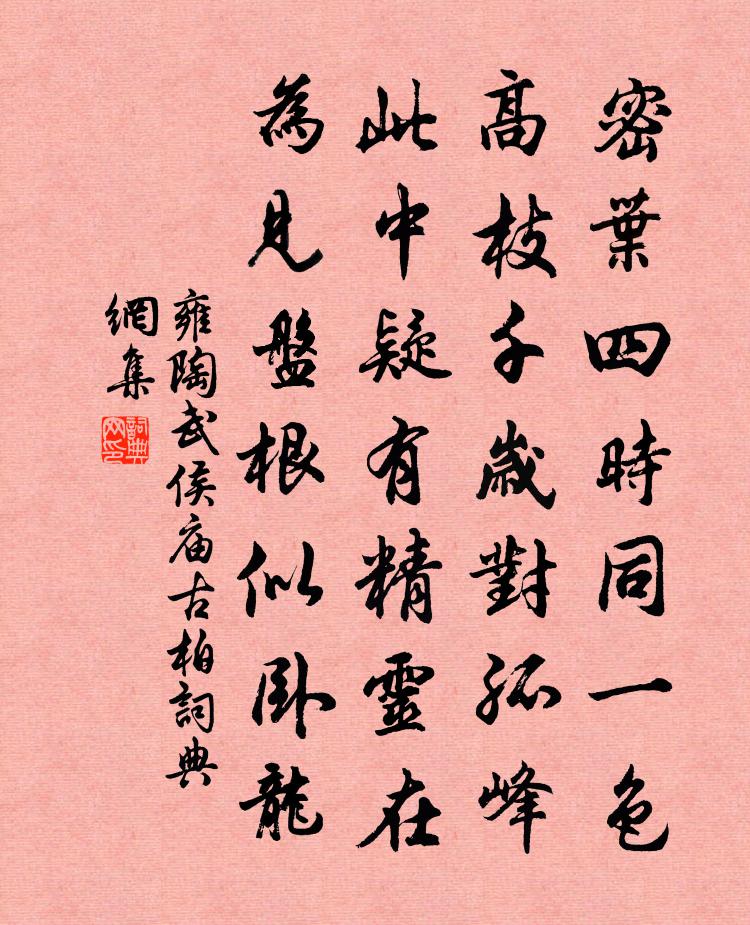 密葉四時同一色
高枝千歲對孤峰
此中疑有精靈在
為見盤根似卧龍
雍陶武侯庙古柏詞典
網集
詞典
网印